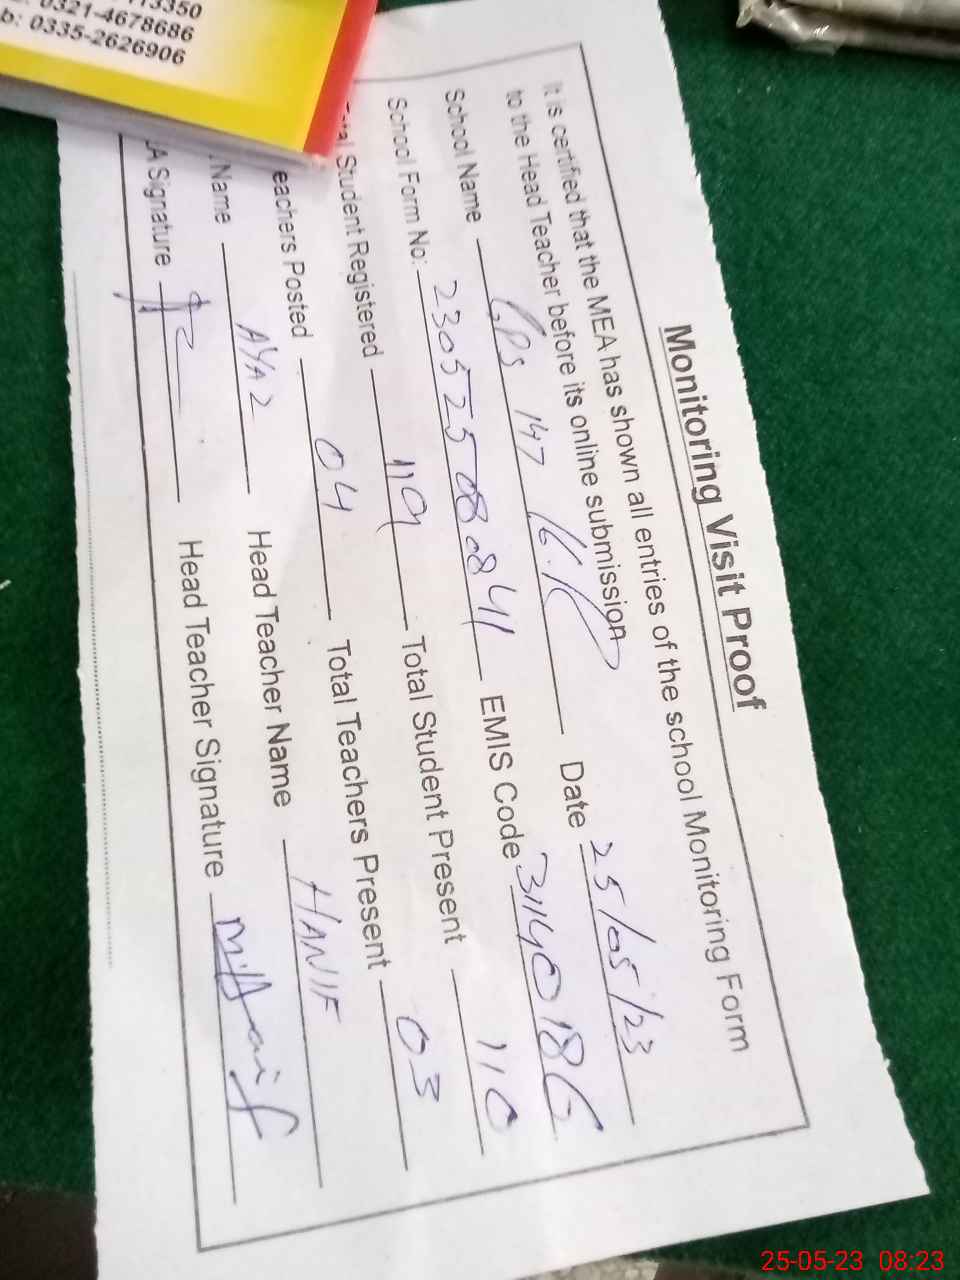 13350
0321-4678686
b: 0335-2626906
Monitoring Visit Proof
It is certified that the MEA has shown all entries of the school Monitoring Form
to the Head Teacher before its online submission
School Name GPS 147 Date 25/05/23
School Form No: 23052508841 EMIS Code 31140186
Student Registered 119 Total Student Present 110
eachers Posted 04 Total Teachers Present 03
Name Head Teacher Name HANIF
A Signature Head Teacher Signature M.Hanif
25-05-23 08:23